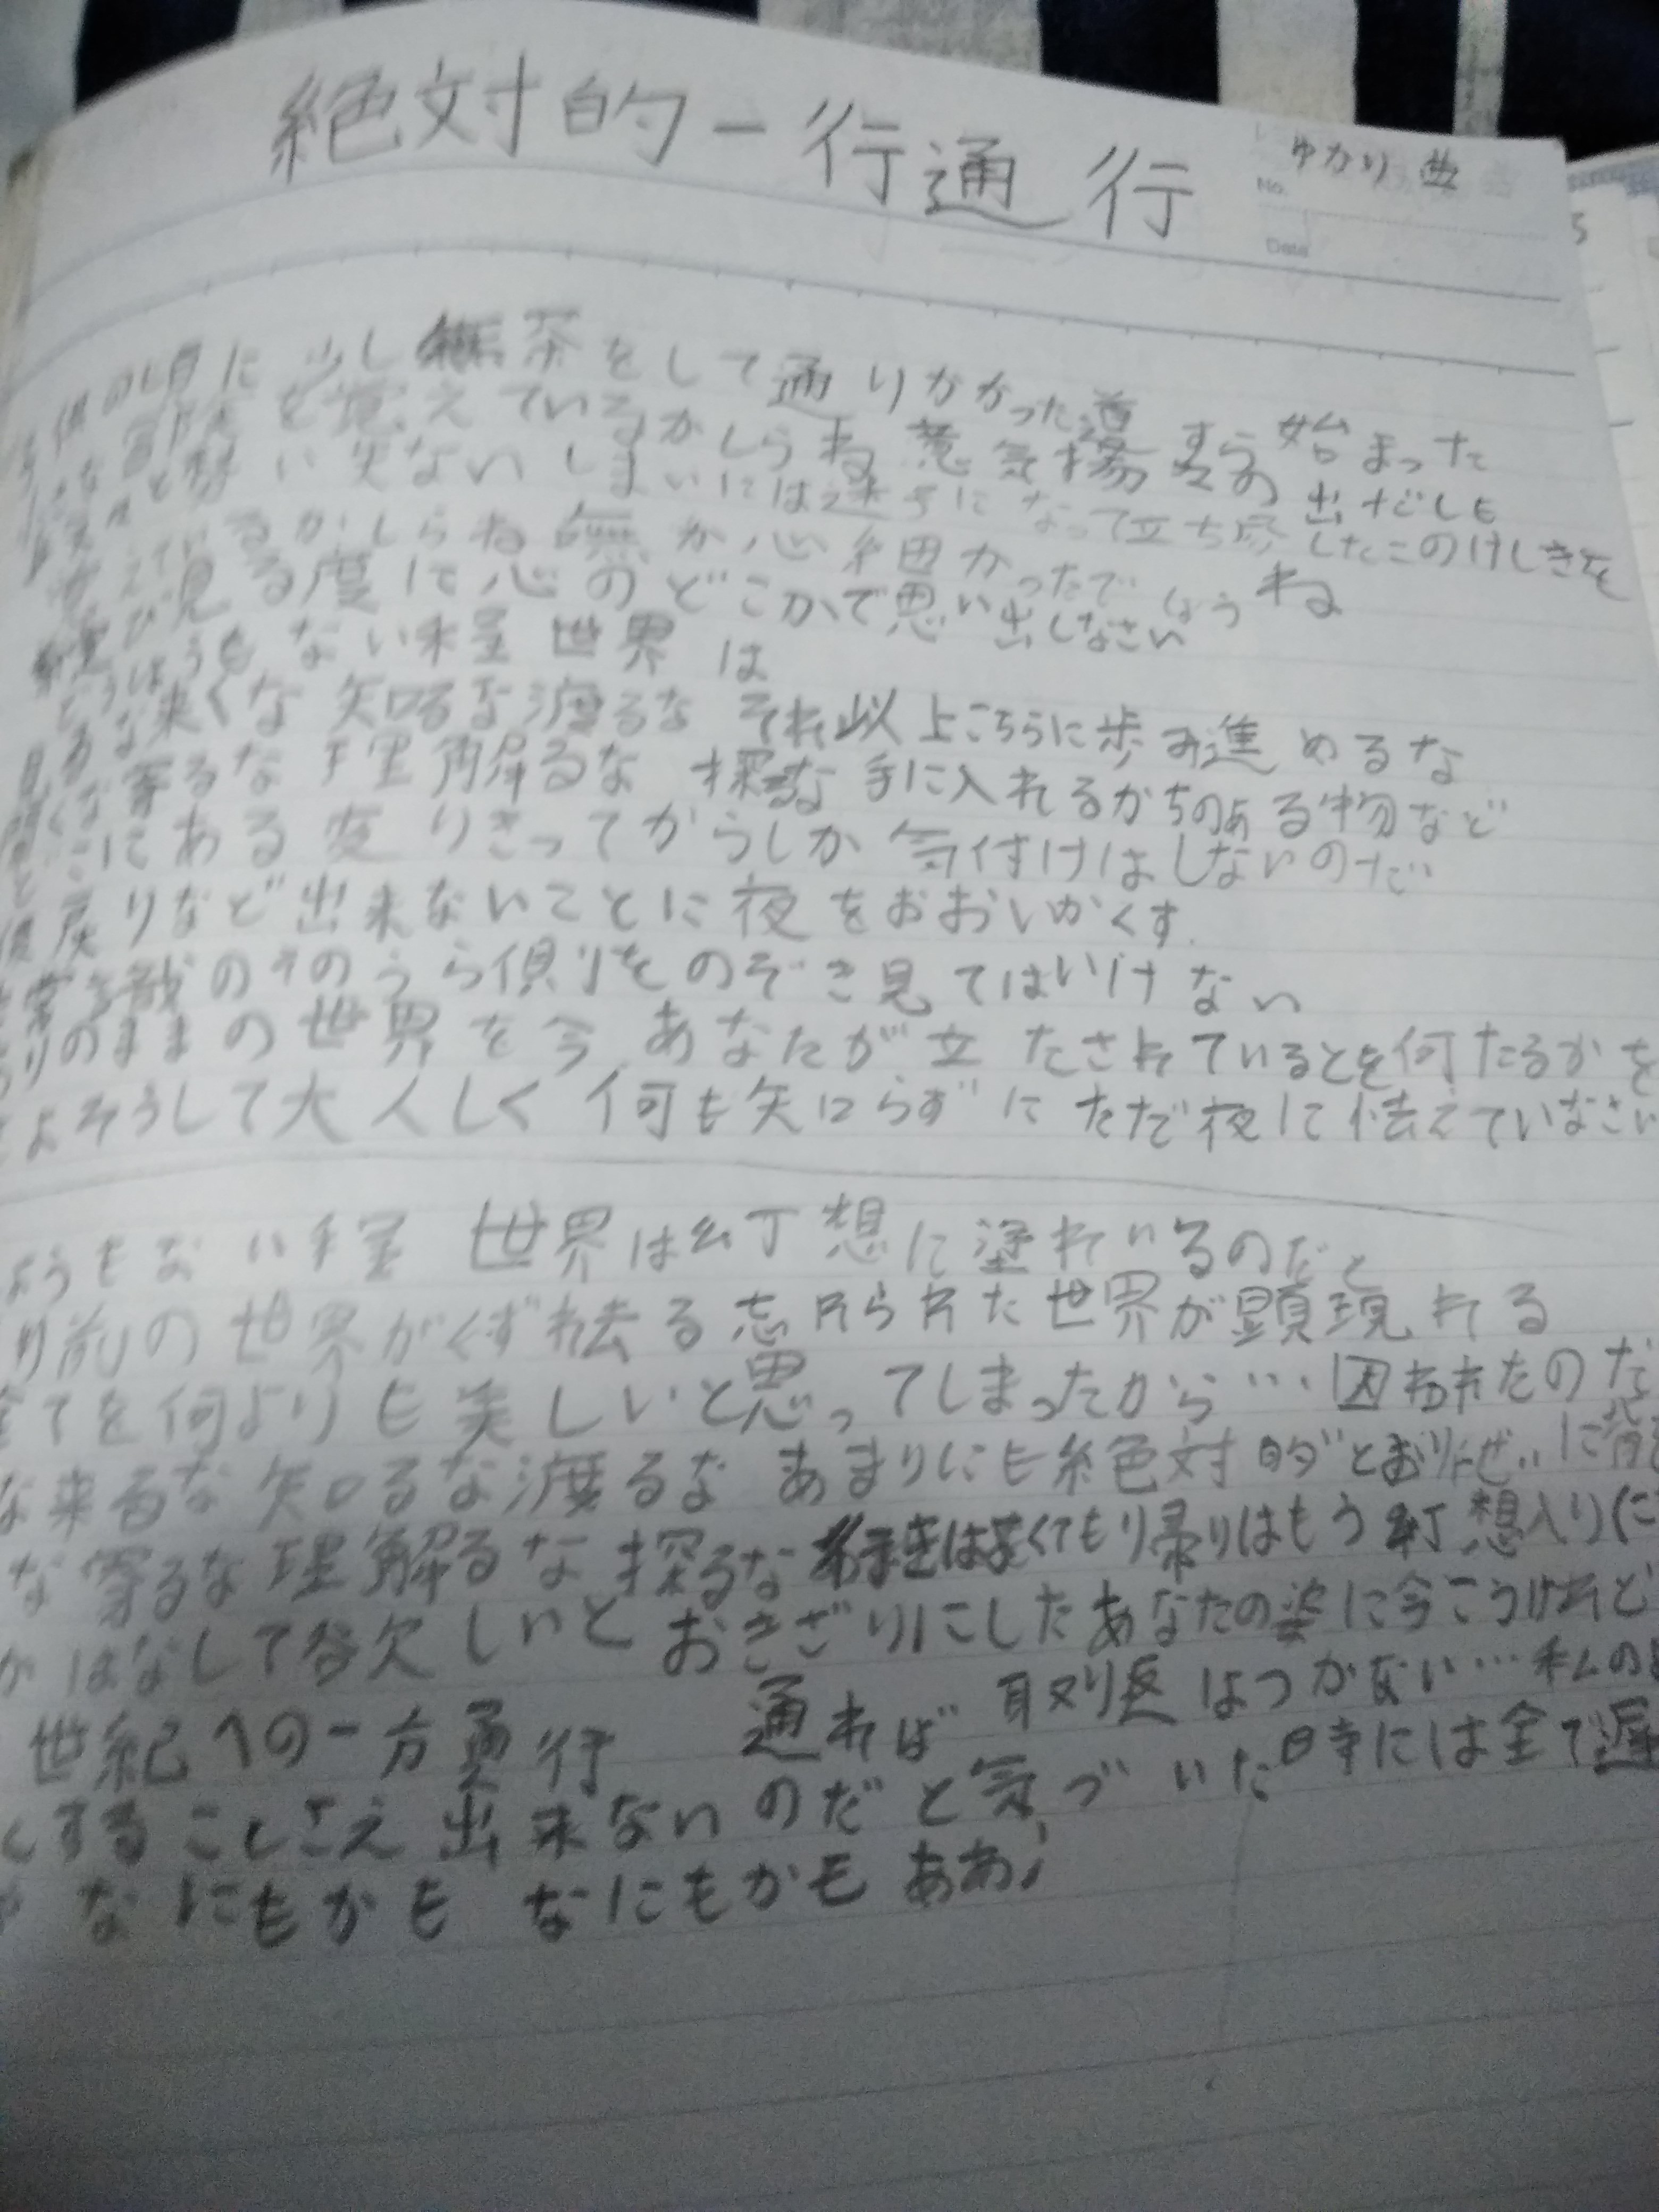 絶対的一行通行
ゆかり 曲
No.
Date
供の頃に 少し無茶をして通りかかった道 すら 始まった
な冒険を覚えているかしらね 意気揚々の出だしも
い失ない しまいには迷子になって立ち尽したこのけしきを
えているかしらね 無 か心細かったでしょうね
び見る度に心のどこかで思い出しなさい
どうしようもない程 世界は
見るな来くな 知るな渡るな それ以上こちらに歩み進めるな
くな寄るな 理解るな 探るな 手に入れるかちのある物など
どこにある変りきってからしか気付けはしないのだ
戻りなど出来ないことに夜をおおいかくす.
常識のそのうら側りをのぞき見てはいけない
りのままの世界を今 あなたが立たされているとを何たるかを
よそうして大人しく 何も知らずに ただ夜に怯えていなさい
ようもない程 世界は幻想に塗れいるのだと
り前の世界がくずれ去る 世界が顕現れる
全てを何よりも美しいと思ってしまったから… 囚われたのだ
な来るな 知るな渡るな あまりにも絶対的 に背
な寄るな理解るな 探るな くてもり帰りはもう 幻想入り(に
か はなして欲しいと おきざりにしたあなたの姿に今こうけれど
世紀への一方通行 通れば 取り返 はつかない… 私の
くすることさえ出来ないのだと気づいた時には全て遅
なにもかも なにもかも ああ、